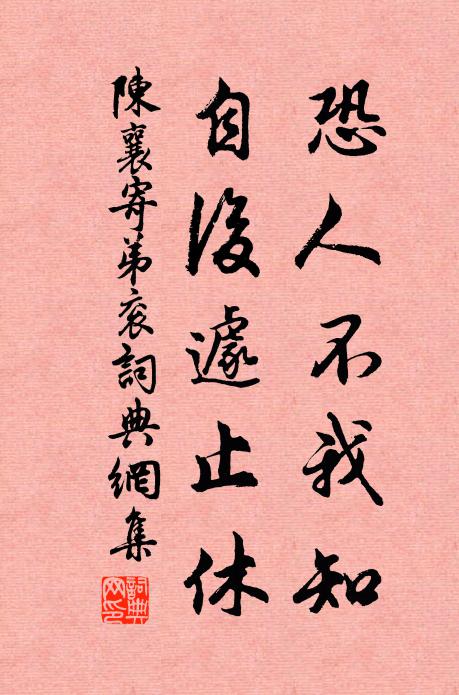 恐人不我知
自後遽止休
陳襄寄弟袞詞典網集
詞典網印